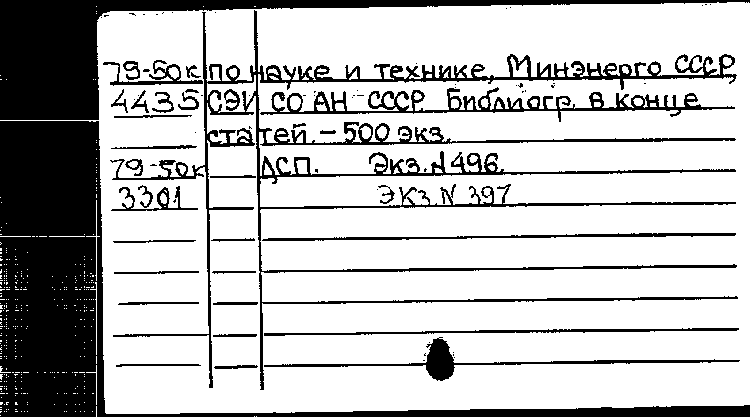 79-50к по науке и технике, Минэнерго СССР,
4435 СЭИ СО АН СССР. Библиогр. в конце
статей. – 500 экз.
79-50к ДСП. Экз. N 496.
3301 Экз. N 397